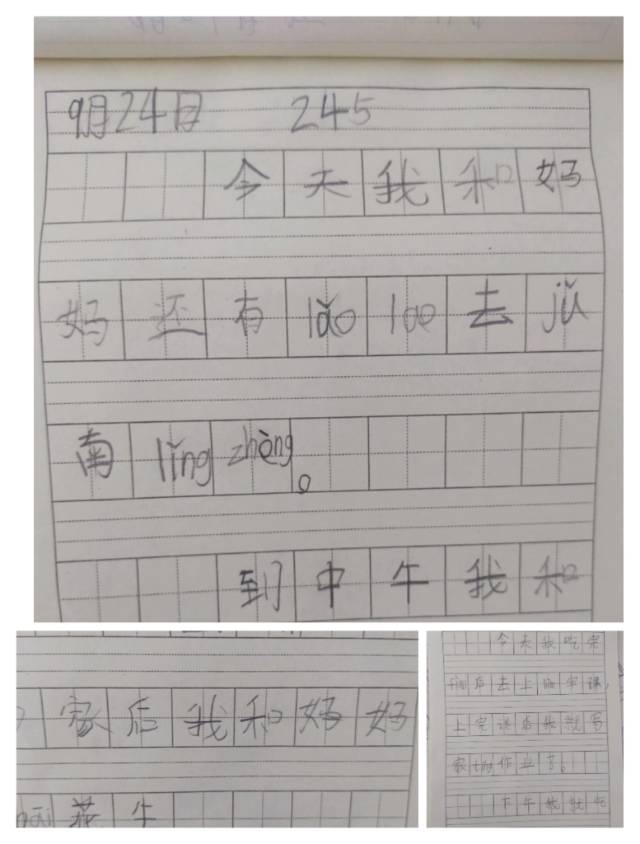 9月24日 245
今天我和妈
妈还有lǎo lao去jǔ
南lǐng zhèng。
到中午我和
家后我和妈妈
今天我吃完
后去上 课,
上完课后我就写
家 作业了。
下午我就